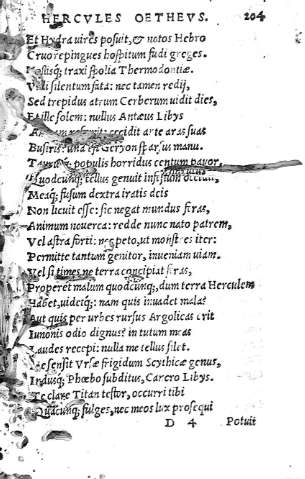 HERCVLES OETHEVS. 204
Et Hydra uires posuit, & notos Hebro
Cruore pingues hospitum fudi greges.
traxi spolia Thermodontiæ.
silentum fata: nec tamen redij,
Sed trepidus atrum Cerberum uidit dies,
Et ille solem: nullus Antæus Libys
arte aras suas
Busiris: una est Geryon sparsus manu.
populis horridus centum pauor,
Quodcunq; tellus genuit infestum
Meaq; fusum dextra iratis deis
Non licuit esse: sic negat mundus feras,
Animum nouerca: redde nunc nato patrem,
Vel astra forti: nec peto, ut monstres iter:
Permitte tantum genitor, inueniam uiam.
Vel si times ne terra concipiat feras,
Properet malum quodcunq;, dum terra Herculem
Habet, uidetq;: nam quis inuadet mala?
Aut quis per urbes rursus Argolicas erit
Iunonis odio dignus? in tutum meas
Laudes recepi: nulla me tellus silet.
sensit Vrsæ frigidum Scythicæ genus,
Indusq; Phœbo subditus, Cancro Libys.
Te clare Titan testor, occurri tibi
Quacunq; fulges, nec meos lux prosequi
D 4 Potuit